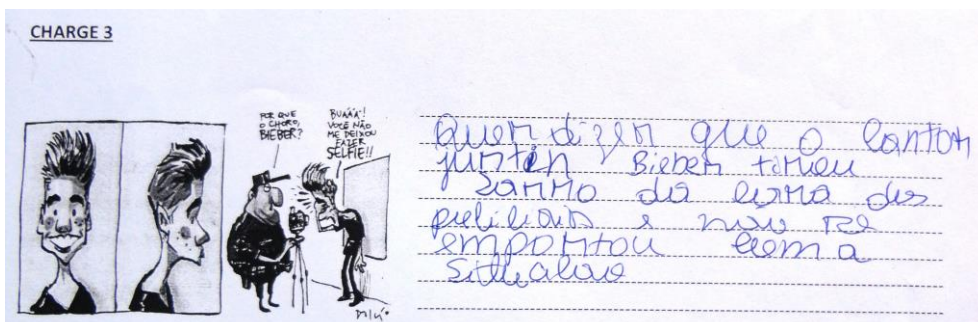 CHARGE 3
POR QUE
O CHORO,
BIEBER?
BUÁÁÁ!
VOCÊ NÃO
ME DEIXOU
FAZER
SELFIE!!
Quer dizer que o cantor
justin Bieber tirou
sarro da cara dos
policiais e não se
emportou com a